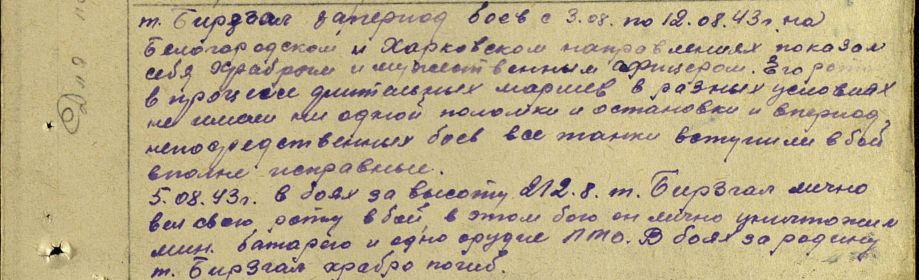 т. Бирзгал запериод боев с 3.08. по 12.08.43г. на
Белогородском и Харковском направлениях показал
себя храбрым и мужественным офицером. Его рота
в процессе длительных маршев в разных условиях
не имели ни одной поломки и остановки и впериод
непосредственных боев все танки вступили в бой
вполне исправные.
5.08.43г. в боях за высоту 212.8. т. Бирзгал лично
вел свою роту в бой в этом бою он лично уничтожил
мин. батарею и одно орудие ПТО. В боях за родину
т. Бирзгал храбро погиб.